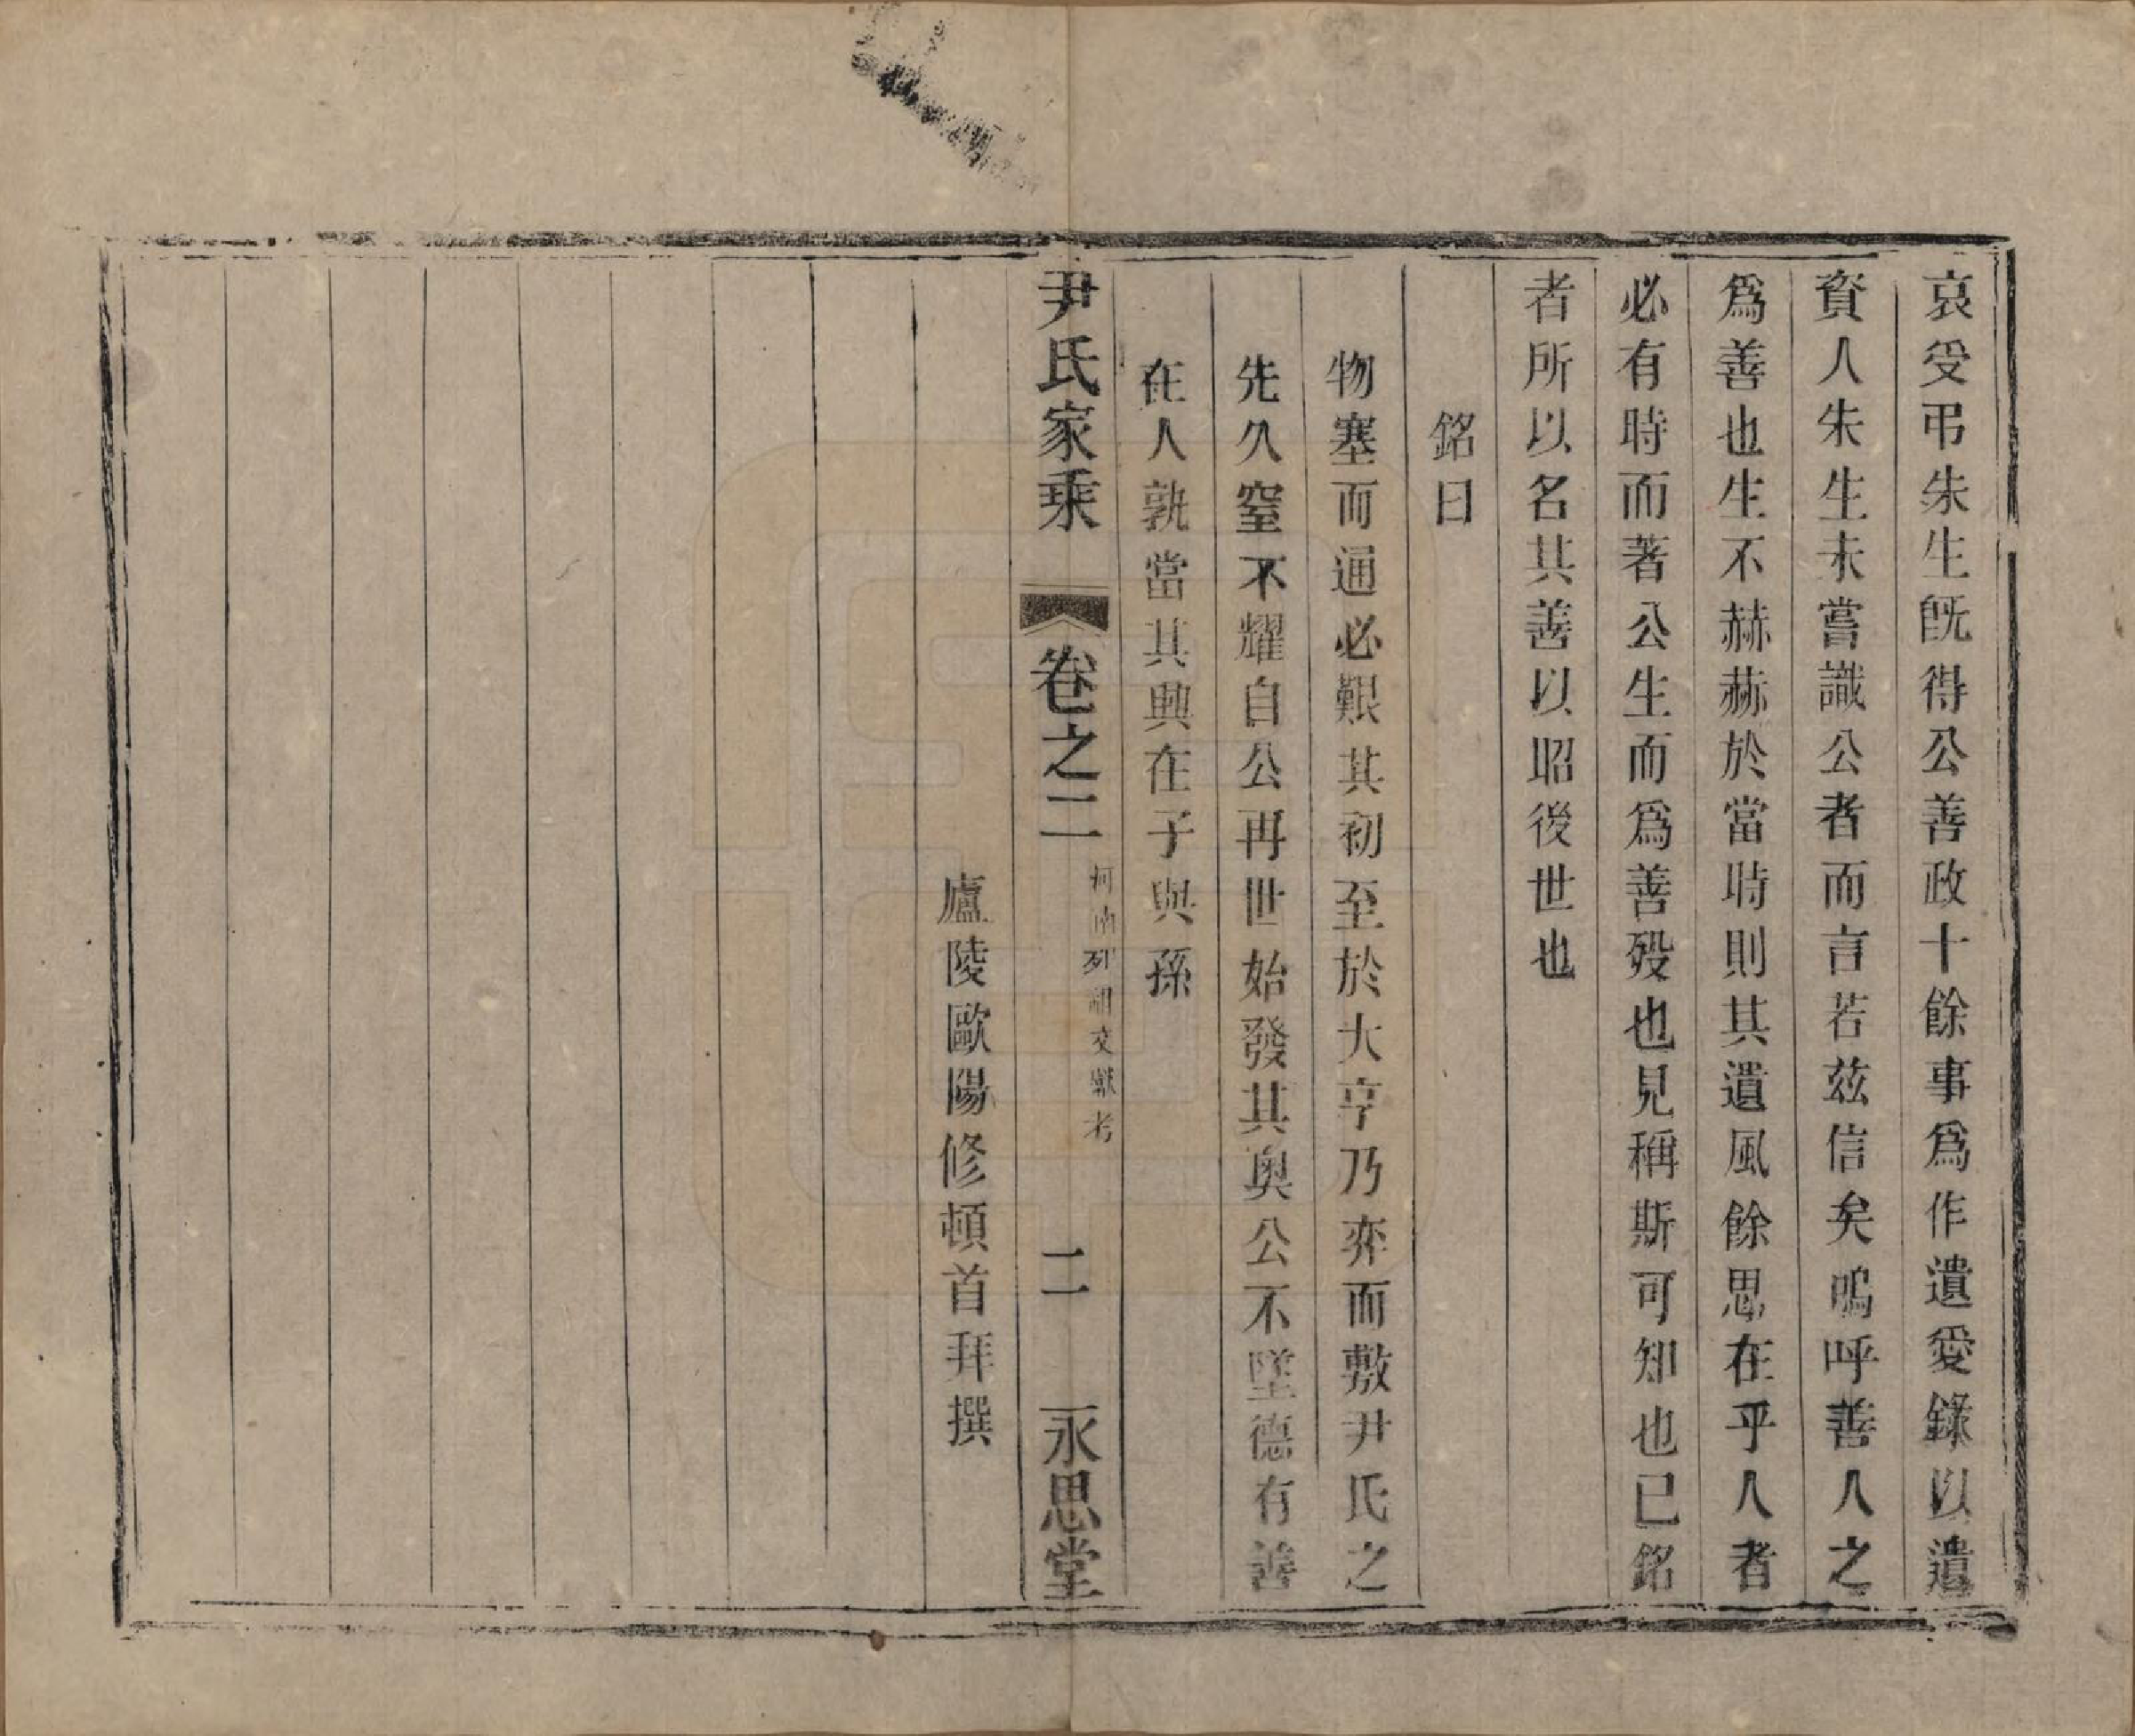 哀受弔朱生旣得公善政十餘事爲作遺愛錄以遺
資人朱生未嘗識公者而言若茲信矣嗚呼善人之
爲善也生不赫赫於當時則其遺風餘思在乎人者
必有時而著公生而爲善歿也見稱斯可知也已銘
者所以名其善以昭後世也
銘曰
物塞而通必艱其初至於大亨乃奕而敷尹氏之
先久窒不耀自公再世始發其奥公不墜德有善
在人孰當其興在子與孫
尹氏家乘 卷之二 河南列祖文獻考 二 永思堂
廬陵歐陽修頓首拜撰